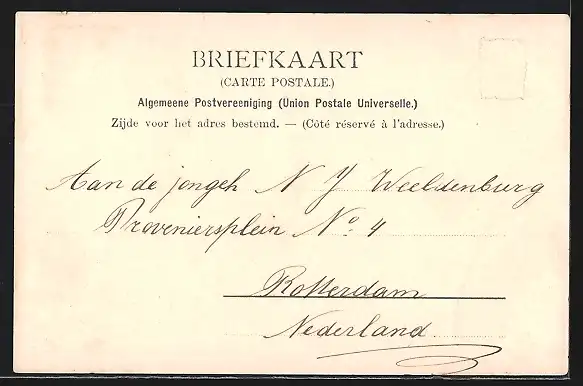 BRIEFKAART
(CARTE POSTALE.)
Algemeene Postvereeniging (Union Postale Universelle.)
Zijde voor het adres bestemd. — (Côté réservé à l'adresse.)
Aan de jongeh N J Weeldenburg
Proveniersplein No. 4
Rotterdam
Nederland